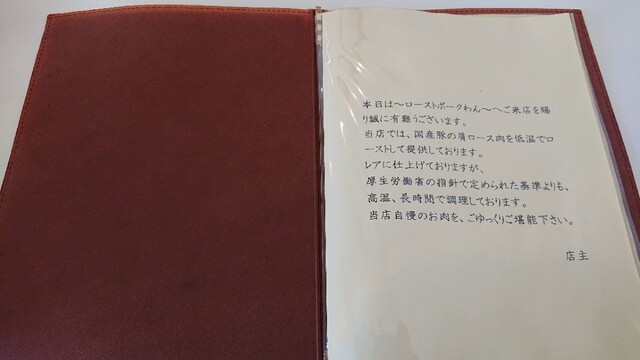 本日は～ローストポークわん～へご来店を賜
り誠に有難うございます。
当店では、国産豚の肩ロース肉を低温でロ
ーストして提供しております。
レアに仕上げておりますが、
厚生労働省の指針で定められた基準よりも、
高温、長時間で調理しております。
当店自慢のお肉を、ごゆっくりご堪能下さい。
店主